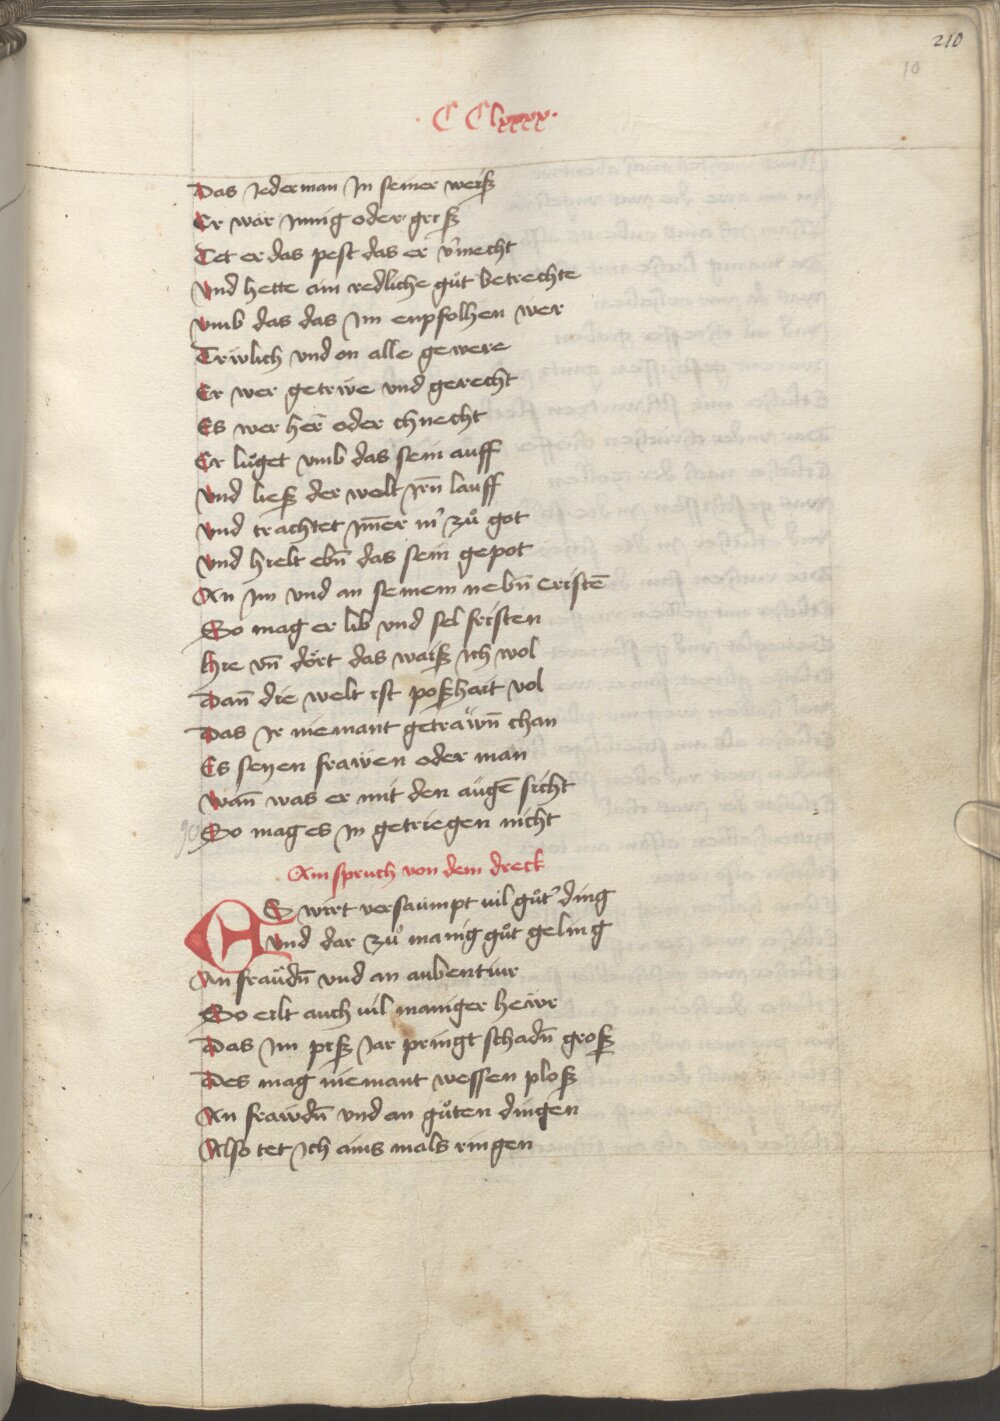 210
10
· C C lxxxx ·
Das Jederman Jn seiner weiß
Er wär Jung oder greiß
Tet er das pest das er v̉mecht
Vnd hette ain redliche gůt betrechte
Vmb das das Jm enpfolhen wer
Trẅlich vnd on alle gewere
Er wer getrẅe vnd gerecht
Es wer her̄ oder chnecht
Er lůget vmb das sein auff
Vnd ließ der welt Jrn̄ lauff
Vnd trachtet Jm̄er m̉ zů got
Vnd hielt ebn̄ das sein gepot
An Jm vnd an seinem nebn̄ cristē
So mag er lib vnd sel fristen
Hie vn̄ dört das waiß Jch wol
Dan̄ die welt ist poßhait vol
Das Jr niemant getraẅn̄ chan
Es seyen frawen oder man
Wan̄ was er mit den augē sicht
90 So mag es Jn getriegen nicht
Ain spruch von dem dreck
ES wirt versaumpt vil gůt̉ ding
Vnd dar zů manig gůt geling
An fraẅdn̄ vnd an aubentiur
So erlt auch vil maniger heẅr
Das Jm piß Jar pringt schadn̄ groß
Des mag niemant wessen ploß
An frawdn̄ vnd an gůten dingen
Also tet Jch ains mals ringen